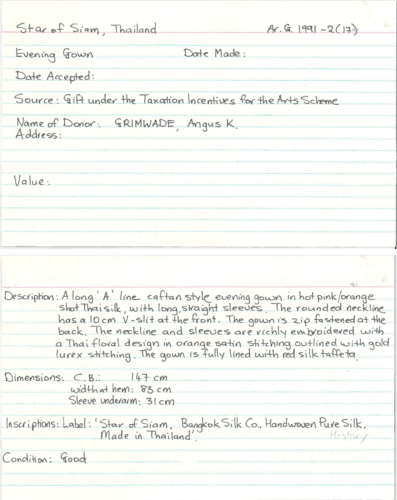 Star of Siam, Thailand Ar.G 1991-2(17)
Evening Gown Date Made:
Date Accepted:
Source: Gift under the Taxation Incentives for the Arts Scheme
Name of Donor: GRIMWADE, Angus K.
Address:
Value:
Description: A long 'A' line caftan style evening gown in hot pink/orange
shot Thai silk, with long, straight sleeves. The rounded neckline
has a 10cm V-slit at the front. The gown is zip fastened at the
back. The neckline and sleeves are richly embroidered with
a Thai floral design in orange satin stitching outlined with gold
lurex stitching. The gown is fully lined with red silk taffeta.
Dimensions: C.B.: 147 cm
width at hem: 83 cm
Sleeve underarm: 31 cm
Inscriptions: Label: 'Star of Siam, Bangkok Silk Co., Handwoven Pure Silk,
Made in Thailand'. History
Condition: Good